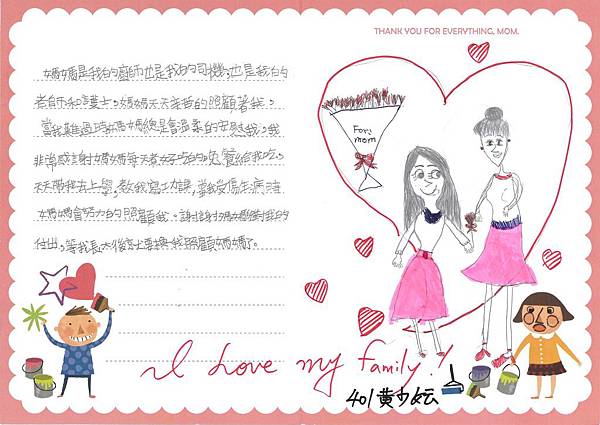 媽媽是我的廚師也是我的司機,也是我的
老師和護士。媽媽天天辛苦的照顧著我。
當我難過時媽媽總是會溫柔的安慰我。我
非常感謝媽媽每天煮好吃的晚餐給我吃。
天天帶我去上學,教我寫功課,當我受傷生病時
媽媽會努力的照顧我。謝謝媽媽對我的
付出,等我長大後就換我照顧媽媽了。
THANK YOU FOR EVERYTHING, MOM.
For:
mom
I Love my Family!
401黃少妘